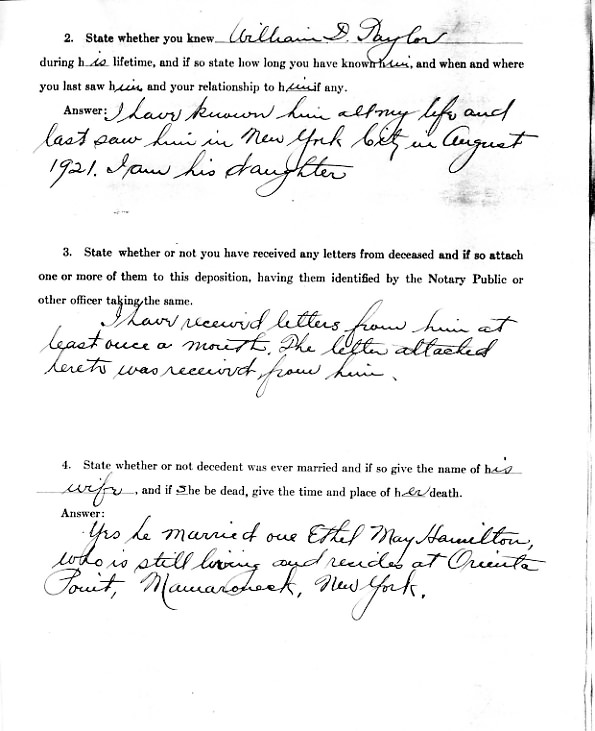 2. State whether you knew William D. Taylor
during his lifetime, and if so state how long you have known him, and when and where
you last saw him, and your relationship to him if any.
Answer: I have known him all my life and
last saw him in New York City in August
1921. I am his daughter
3. State whether or not you have received any letters from deceased and if so attach
one or more of them to this deposition, having them identified by the Notary Public or
other officer taking the same.
I have received letters from him at
least once a month. The letter attached
hereto was received from him.
4. State whether or not decedent was ever married and if so give the name of his
wife, and if She be dead, give the time and place of her death.
Answer:
Yes he married one Ethel May Hamilton,
who is still living and resides at Orienta
Point, Mamaroneck, New York.